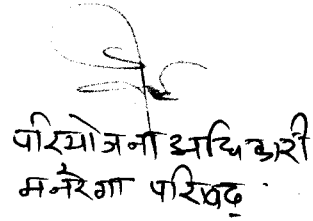 परियोजना अधिकारी
मनरेगा परिषद